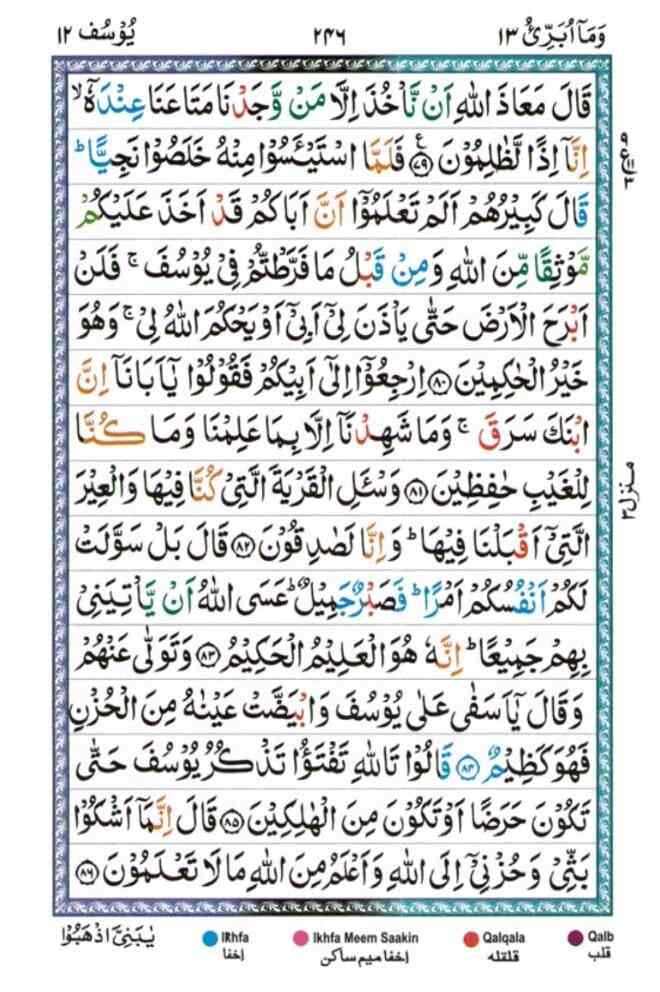 وَمَآ اُبَرِّئُ ١٣
٢٤٦
يُوْسُف ١٢
قَالَ مَعَاذَ اللّٰهِ اَنْ نَّاْخُذَ اِلَّا مَنْ وَّجَدْنَا مَتَاعَنَا عِنْدَهٗٓ ۙ
اِنَّآ اِذًا لَّظٰلِمُوْنَ ﴿٧٩﴾ ع فَلَمَّا اسْتَيْـَٔسُوْا مِنْهُ خَلَصُوْا نَجِيًّا ؕ
قَالَ كَبِيْرُهُمْ اَلَمْ تَعْلَمُوْٓا اَنَّ اَبَاكُمْ قَدْ اَخَذَ عَلَيْكُمْ
مَّوْثِقًا مِّنَ اللّٰهِ وَمِنْ قَبْلُ مَا فَرَّطْتُّمْ فِيْ يُوْسُفَ ۚ فَلَنْ
اَبْرَحَ الْاَرْضَ حَتّٰى يَاْذَنَ لِيْٓ اَبِيْٓ اَوْ يَحْكُمَ اللّٰهُ لِيْ ۚ وَهُوَ
خَيْرُ الْحٰكِمِيْنَ ﴿٨٠﴾ اِرْجِعُوْٓا اِلٰٓى اَبِيْكُمْ فَقُوْلُوْا يٰٓاَبَانَآ اِنَّ
ابْنَكَ سَرَقَ ۚ وَمَا شَهِدْنَآ اِلَّا بِمَا عَلِمْنَا وَمَا كُنَّا
لِلْغَيْبِ حٰفِظِيْنَ ﴿٨١﴾ وَسْـَٔلِ الْقَرْيَةَ الَّتِيْ كُنَّا فِيْهَا وَالْعِيْرَ
الَّتِيْٓ اَقْبَلْنَا فِيْهَا ؕ وَاِنَّا لَصٰدِقُوْنَ ﴿٨٢﴾ قَالَ بَلْ سَوَّلَتْ
لَكُمْ اَنْفُسُكُمْ اَمْرًا ؕ فَصَبْرٌ جَمِيْلٌ ؕ عَسَى اللّٰهُ اَنْ يَّاْتِيَنِيْ
بِهِمْ جَمِيْعًا ؕ اِنَّهٗ هُوَ الْعَلِيْمُ الْحَكِيْمُ ﴿٨٣﴾ وَتَوَلّٰى عَنْهُمْ
وَقَالَ يٰٓاَسَفٰى عَلٰى يُوْسُفَ وَابْيَضَّتْ عَيْنٰهُ مِنَ الْحُزْنِ
فَهُوَ كَظِيْمٌ ﴿٨٤﴾ قَالُوْا تَاللّٰهِ تَفْتَؤُا تَذْكُرُ يُوْسُفَ حَتّٰى
تَكُوْنَ حَرَضًا اَوْ تَكُوْنَ مِنَ الْهٰلِكِيْنَ ﴿٨٥﴾ قَالَ اِنَّمَآ اَشْكُوْا
بَثِّيْ وَحُزْنِيْٓ اِلَى اللّٰهِ وَاَعْلَمُ مِنَ اللّٰهِ مَا لَا تَعْلَمُوْنَ ﴿٨٦﴾
منزل ٣
يٰبَنِيَّ اذْهَبُوْا
IRhfa
اخفا
Ikhfa Meem Saakin
اخفا ميم ساكن
Qalqala
قلقله
Qalb
قلب